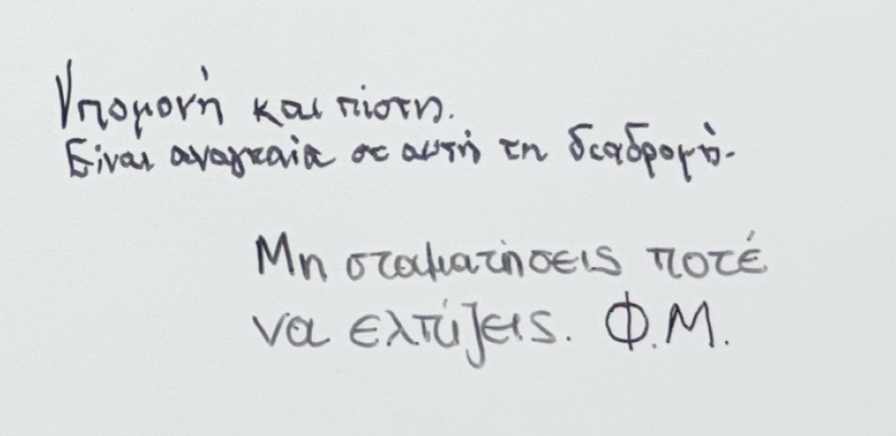 Υπομονή και πίστη.
Είναι αναγκαία σε αυτή τη διαδρομή.
Μη σταματήσεις ποτέ
να ελπίζεις. Φ.Μ.